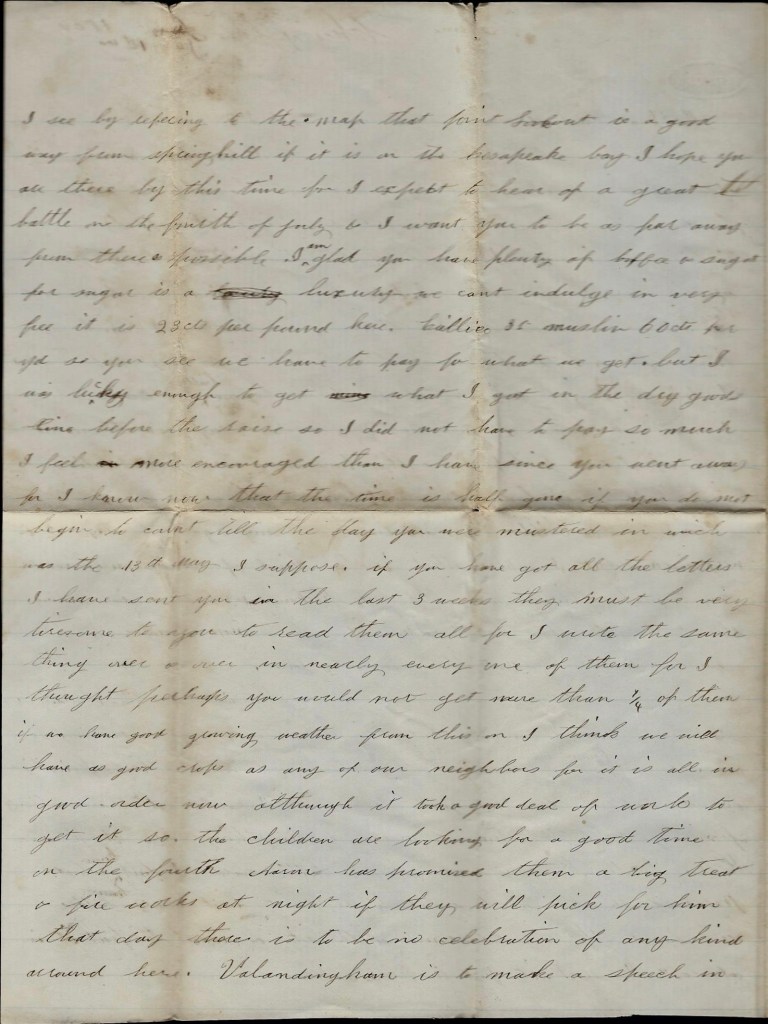 I see by refering to the map that point lookout is a good
way from springhill if it is on the chesapeake bay I hope you
are there by this time for I expect to hear of a great
battle on the fourth of july & I want you to be as far away
from there possible I am glad you have plenty of coffee & sugar
for sugar is a luxury we cant indulge in very
free it is 23 cts per pound here. Callico 35 muslin 60 cts per
yd so you see we have to pay for what we get. but I
was lucky enough to get what I got in the dry goods
line before the raise so I did not have to pay so much
I feel more encouraged than I have since you went away
for I know now that the time is half gone if you do not
begin to count till the day you were mustered in wich
was the 13th May I suppose. if you have got all the letters
I have sent you in the last 3 weeks they must be very
tiresome to you to read them all for I wrote the same
thing over & over in nearly every one of them for I
thought perhaps you would not get more than 1/4 of them
if we have good growing weather from this on I think we will
have as good crops as any of our neighbors for it is all in
good order now although it took a good deal of work to
get it so. the children are looking for a good time
on the fourth Aaron has promised them a big treat
& fire works at night if they will pick for him
that day there is to be no celebration of any kind
around here. Valandingham is to make a speech in